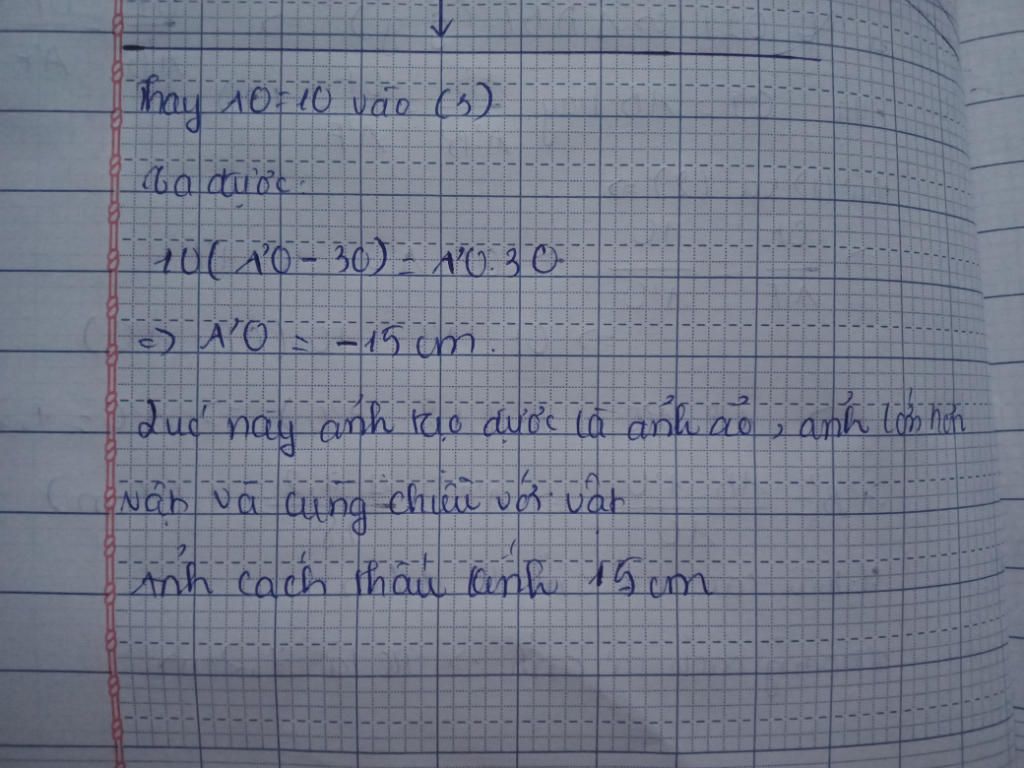 Thay AO = 10 vào (3)
ta được.
10(A'O - 30) = A'O.30
=> A'O = -15 cm.
Lúc này ảnh tạo được là ảnh ảo, ảnh lớn hơn
vật và cùng chiều với vật
Ảnh cách thấu kính 15 cm